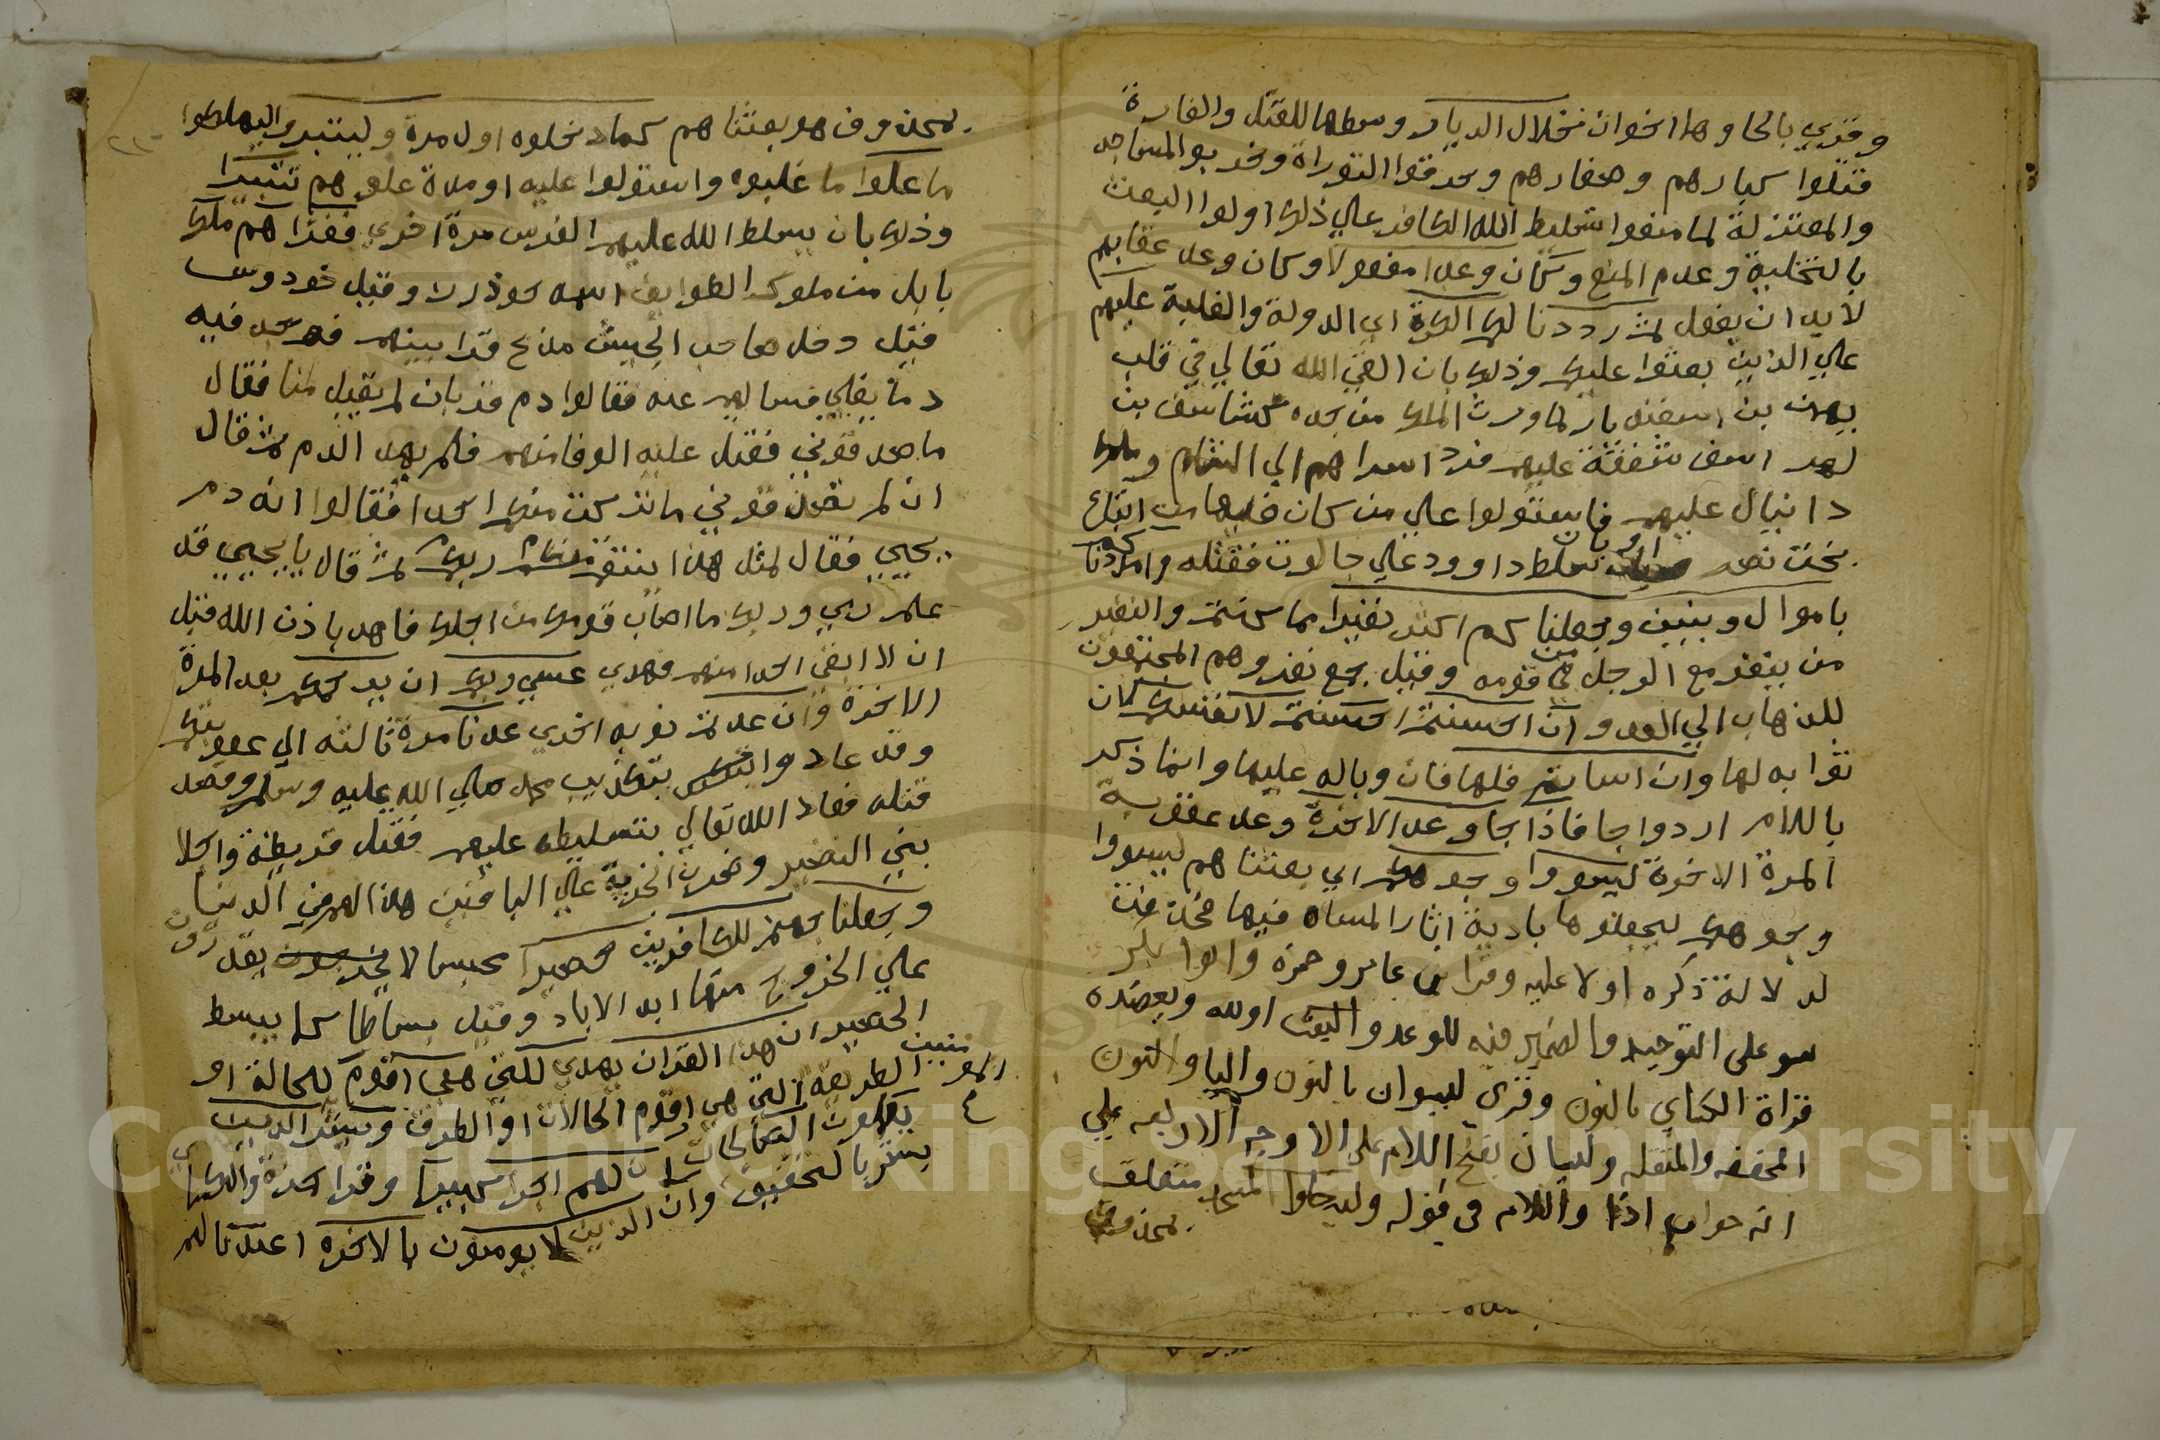 وقري بالحا وهما اخوان خلال الديار وسطها للقتل والغارة
قتلوا كبارهم وصغارهم وحرقوا التوراة وخربوا المساجد
والمعتزلة لما منعوا تسليط الله الكافر علي ذلك اولوا البعث
بالتخلية وعدم المنع وكان وعدا مفعولا وكان وعد عقابهم
لا بد ان يفعل ثم رددنا لكم الكرة اي الدولة والغلبة عليهم
علي الذين بعثوا عليكم وذلك بان القي الله تعالي في قلب
بهمن بن اسفنديار لما ورث الملك من جده كشتاسف بن
لهراسف شفقة عليهم فرد اسراهم الي الشام وملك
دانيال عليهم فاستولوا علي من كان فيها من اتباع
بخت نصر او بان سلط داوود علي جالوت فقتله وامددناكم
باموال وبنين وجعلناكم اكثر نفيرا مما كنتم والنفير
من ينفر مع الرجل من قومه وقيل جمع نفر وهم المجتمعون
للذهاب الي العدو ان احسنتم احسنتم لانفسكم لان
ثوابه لها وان اساتم فلها فان وباله عليها وانما ذكر
باللام ازدواجا فاذا جا وعد الاخرة وعد عقوبة
المرة الاخرة ليسووا وجوهكم اي بعثناهم ليسووا
وجوهكم ليجعلوها بادية اثار المساه فيها فحذف
لدلالة ذكره اولا عليه وقرا بن عامر وحمزه وابوا بكر
ليسو على التوحيد والضمير فيه للوعد والبعث اولله ويعضده
قراة الكساي بالنون وقري ليسوان بالنون واليا والنون
المخففه والمثقله وليسان بفتح اللام على الاوجه الاربعه علي
انه جواب اذا واللام في قوله وليدخلوا المسجد متعلق
بمحذوف
بمحذوف هو بعثناهم كما دخلوه اول مرة وليتبروا ليهلكوا
ما علوا ما غلبوه واستولوا عليه او مدة علوهم تتبيرا
وذلك بان سلط الله عليهم الفرس مرة اخري فغزاهم ملك
بابل من ملوك الطوايف اسمه جوذرز وقيل خردوس
قيل دخل صاحب الجيش مذبح قرابينهم فوجد فيه
دما يغلي فسالهم عنه فقالوا دم قربان لم يقبل منا فقال
ما صدقوني فقتل عليه الوفا منهم فلم يهد الدم ثم قال
ان لم تصدقوني ما تركت منكم احدا فقالوا انه دم
يحيي فقال لمثل هذا ينتقم منكم ربكم ثم قال يا يحيي قد
علم ربي وربك ما اصاب قومك من اجلك فاهد باذن الله قبل
ان لا ابقي احدا منهم فهدي عسي ربكم ان يرحمكم بعد المرة
الاخرة وان عدتم نوبه اخري عدنا مرة ثالثه الي عقوبتكم
وقد عادوا بتكذيب محمد صلي الله عليه وسلم وقصد
قتله فعاد الله تعالي بتسليطه عليهم فقتل قريظة واجلا
بني النضير وضرب الجزية علي الباقين هذا لهم في الدنيا
وجعلنا جهنم للكافرين حصيرا محبسا لا يقدرون
علي الخروج منها ابد الاباد وقيل بساطا كما يبسط
الحصير ان هذا القران يهدي للتي هي اقوم للحالة او
الطريقة التي هي اقوم الحالات او الطرق ويبشر المومنين الذين
يعملون الصالحات ان لهم اجرا كبيرا وقرا حمزة والكساي
يبشر بالتخفيف وان الذين لا يومنون بالاخره اعتدنا لهم